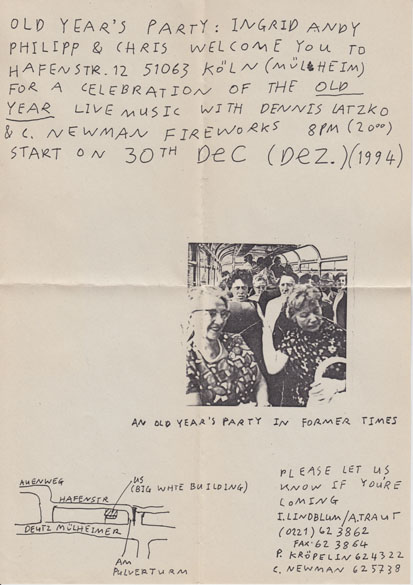 OLD YEAR'S PARTY: INGRID ANDY
PHILIPP & CHRIS WELCOME YOU TO
HAFENSTR. 12 51063 KÖLN (MÜLHEIM)
FOR A CELEBRATION OF THE OLD
YEAR LIVE MUSIC WITH DENNIS LATZKO
& C. NEWMAN FIREWORKS 8PM (20⁰⁰)
START ON 30TH DEC (DEZ.) (1994)
AN OLD YEAR'S PARTY IN FORMER TIMES
AUENWEG
HAFENSTR
US
(BIG WHTE BUILDING)
DEUTZ MÜLHEIMER
AM
PULVERTURM
PLEASE LET US
KNOW IF YOU'RE
COMING
I. LINDBLUM/A. TRAUT
(0221) 62 3862
FAX: 62 3864
P. KRÖPELIN 624322
C. NEWMAN 625738